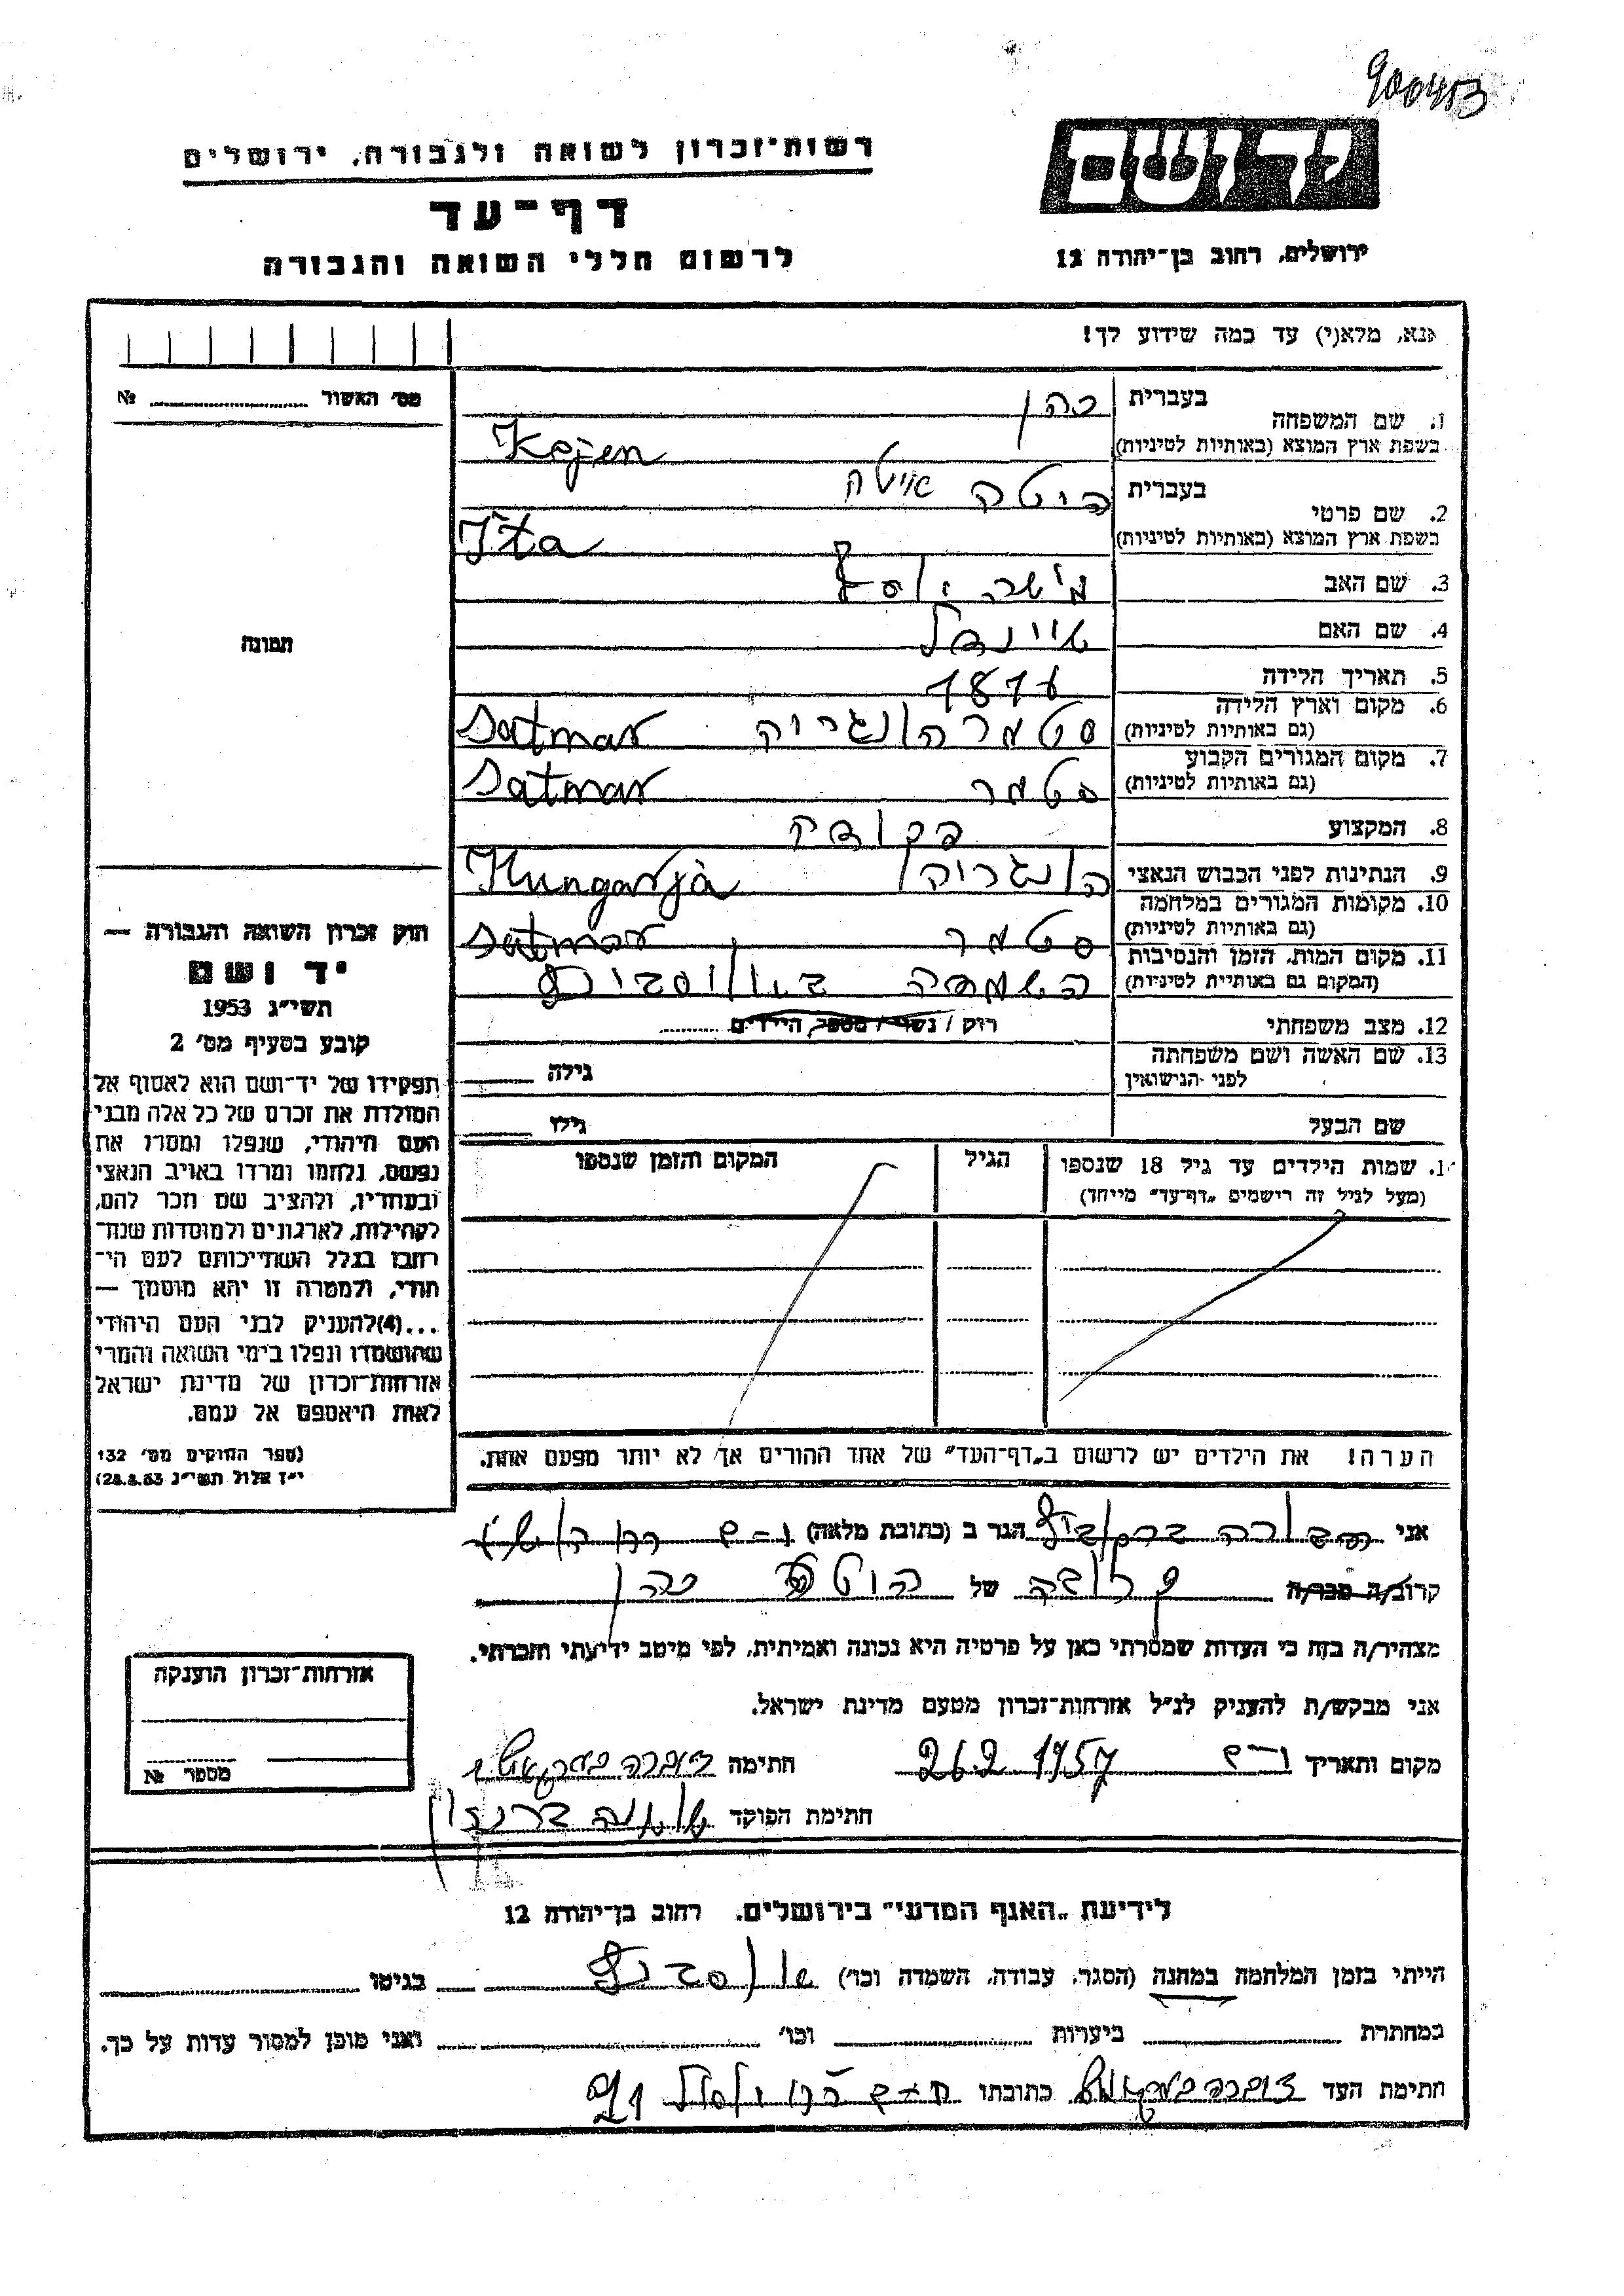 900453
יד ושם
רשות־זכרון לשואה ולגבורה, ירושלים
דף־עד
לרשום חללי השואה והגבורה
ירושלים, רחוב בן־יהודה 12
אנא, מלא(י) עד כמה שידוע לך!
מס׳ האשור №
1. שם המשפחה
בעברית כהן
בשפת ארץ המוצא (באותיות לטיניות) Kojen
2. שם פרטי
בעברית היטה איטה
בשפת ארץ המוצא (באותיות לטיניות) Ita
3. שם האב יוסף
4. שם האם
5. תאריך הלידה 1876
6. מקום וארץ הלידה
(גם באותיות לטיניות) סטמר הונגריה Satmar
7. מקום המגורים הקבוע
(גם באותיות לטיניות) סטמר Satmar
8. המקצוע
9. הנתינות לפני הכבוש הנאצי Hungarja
10. מקומות המגורים במלחמה
(גם באותיות לטיניות) סטמר Satmar
11. מקום המות, הזמן והנסיבות
(המקום גם באותיות לטיניות) השמדה
12. מצב משפחתי רוק / נשוי / מספר הילדים
13. שם האשה ושם משפחתה
לפני הנישואין גילה
שם הבעל גילו
1. שמות הילדים עד גיל 18 שנספו
(מעל לגיל זה רישמים „דף־עד” מייחד)
הגיל
המקום והזמן שנספו
הערה! את הילדים יש לרשום ב„דף־העד” של אחד ההורים אך לא יותר מפעם אחת.
תמונה
חוק זכרון השואה והגבורה —
יד ושם
תשי״ג 1953
קובע בסעיף מס׳ 2
תפקידו של יד־ושם הוא לאסוף אל
המולדת את זכרם של כל אלה מבני
העם היהודי, שנפלו ומסרו את
נפשם, נלחמו ומרדו באויב הנאצי
ובעוזריו, ולהציב שם וזכר להם,
לקהילות, לארגונים ולמוסדות שנח־
רבו בגלל השתייכותם לעם הי־
הודי, ולמטרה זו יהא מוסמך —
...(4)להעניק לבני העם היהודי
שהושמדו ונפלו בימי השואה והמרי
אזרחות־זכרון של מדינת ישראל
לאות היאספם אל עמם.
(ספר החוקים מס׳ 132
י״ז אלול תשי״ג 28.8.53)
אני הגר ב (כתובת מלאה)
קרוב/ה מכר/ה קרובה של כהן
מצהיר/ה בזה כי העדות שמסרתי כאן על פרטיה היא נכונה ואמיתית, לפי מיטב ידיעתי והכרתי.
אני מבקש/ת להעניק לנ״ל אזרחות־זכרון מטעם מדינת ישראל.
מקום ותאריך 26.2 1957 חתימה
חתימת הפוקד
אזרחות־זכרון הוענקה
מספר №
לידיעת „האגף המדעי” בירושלים. רחוב בן־יהודה 12
הייתי בזמן המלחמה במחנה (הסגר, עבודה, השמדה וכו׳) בגיטו
במחתרת ביערות וכו׳ ואני מוכן למסור עדות על כך.
חתימת העד כתובתו 91